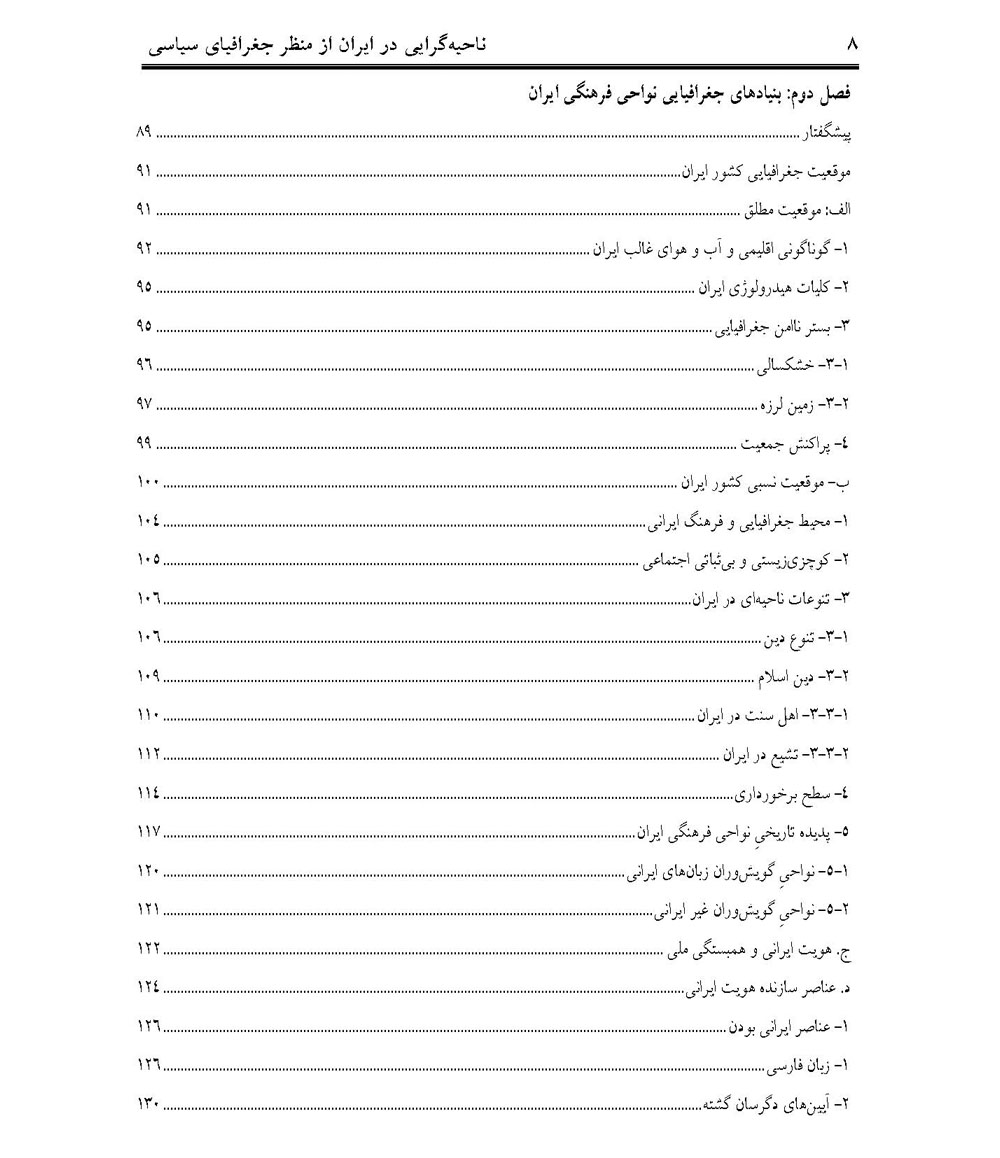 ٨ ناحیه‌گرایی در ایران از منظر جغرافیای سیاسی
فصل دوم: بنیادهای جغرافیایی نواحی فرهنگی ایران
پیشگفتار ........ ٨٩
موقعیت جغرافیایی کشور ایران ........ ٩١
الف: موقعیت مطلق ........ ٩١
١- گوناگونی اقلیمی و آب و هوای غالب ایران ........ ٩٢
٢- کلیات هیدرولوژی ایران ........ ٩٥
٣- بستر ناامن جغرافیایی ........ ٩٥
٣-١- خشکسالی ........ ٩٦
٣-٢- زمین لرزه ........ ٩٧
٤- پراکنش جمعیت ........ ٩٩
ب- موقعیت نسبی کشور ایران ........ ١٠٠
١- محیط جغرافیایی و فرهنگ ایرانی ........ ١٠٤
٢- کوچزی‌زیستی و بی‌ثباتی اجتماعی ........ ١٠٥
٣- تنوعات ناحیه‌ای در ایران ........ ١٠٦
٣-١- تنوع دین ........ ١٠٦
٣-٢- دین اسلام ........ ١٠٩
٣-٣-١- اهل سنت در ایران ........ ١١٠
٣-٣-٢- تشیع در ایران ........ ١١٢
٤- سطح برخورداری ........ ١١٤
٥- پدیده تاریخیِ نواحی فرهنگی ایران ........ ١١٧
٥-١- نواحیِ گویش‌وران زبان‌های ایرانی ........ ١٢٠
٥-٢- نواحیِ گویش‌وران غیر ایرانی ........ ١٢١
ج. هویت ایرانی و همبستگی ملی ........ ١٢٢
د. عناصر سازنده هویت ایرانی ........ ١٢٤
١- عناصر ایرانی بودن ........ ١٢٦
١- زبان فارسی ........ ١٢٦
٢- آیین‌های دگرسان گشته ........ ١٣٠